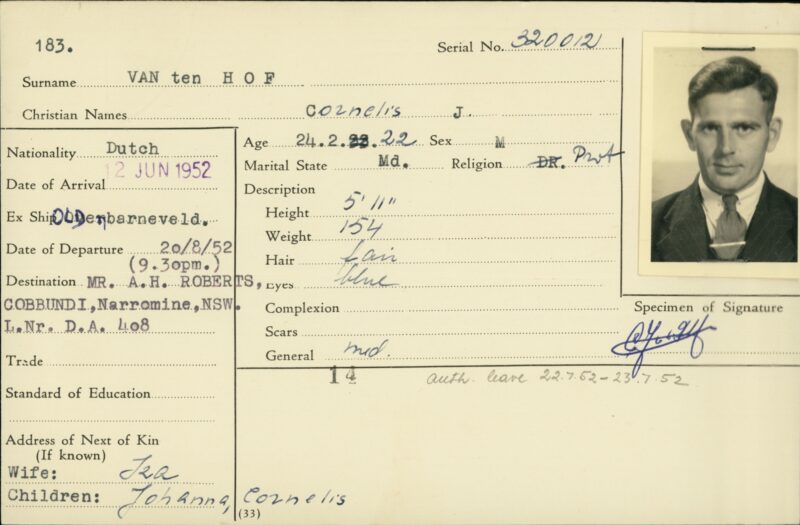 183.
Serial No. 320012
Surname VAN ten HOF
Christian Names Cornelis J.
Nationality Dutch
Date of Arrival 12 JUN 1952
Ex Ship OLDenbarneveld.
Date of Departure 20/8/52
(9.30pm.)
Destination MR. A.H. ROBERTS,
COBBUNDI,Narromine,NSW.
L.Nr. D.A. 408
Trade
Standard of Education
Address of Next of Kin
(If known)
Wife: Iza
Children: Johanna, Cornelis
(33)
Age 24.2.22 Sex M
Marital State Md. Religion DR. Prot
Description
Height 5' 11"
Weight 154
Hair fair
Eyes blue
Complexion
Scars
General med.
14
auth. leave 22.7.52-23.7.52
Specimen of Signature